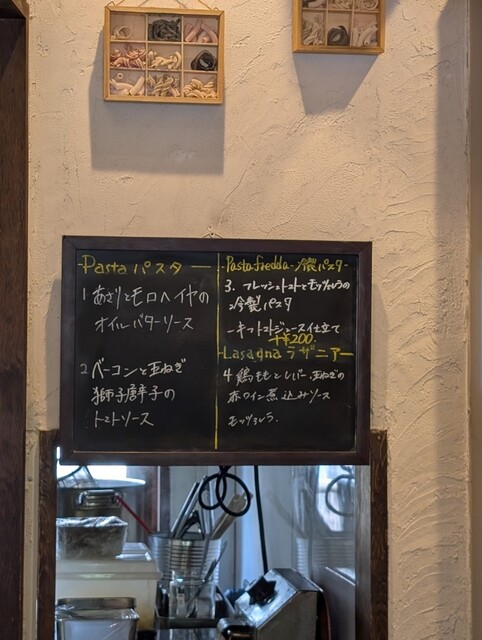 Pasta パスタ
1 あさりとモロヘイヤの
オイルバターソース
2 ベーコンと玉ねぎ
獅子唐辛子の
トマトソース
Pasta fredda 冷製パスタ
3. フレッシュトマトとモッツァレラの
冷製パスタ
トマトジュース仕立て
+¥200.
Lasagna ラザニアー
4. 鶏ももとレバー、玉ねぎの
赤ワイン煮込みソース
モッツァレラ.